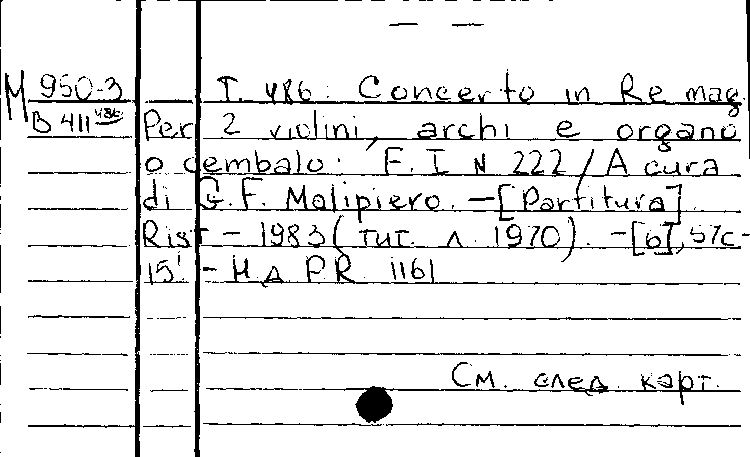 — —
M 950-3 T. 486: Concerto in Re mag.
B 411 486 Per 2 violini, archi e organo
o cembalo: F. I N 222 / A cura
di G. F. Malipiero. — [Partitura].
Rist – 1983 (тит. л. 1970). – [6], 57с-
15! – На PR 1161
См. след. карт.